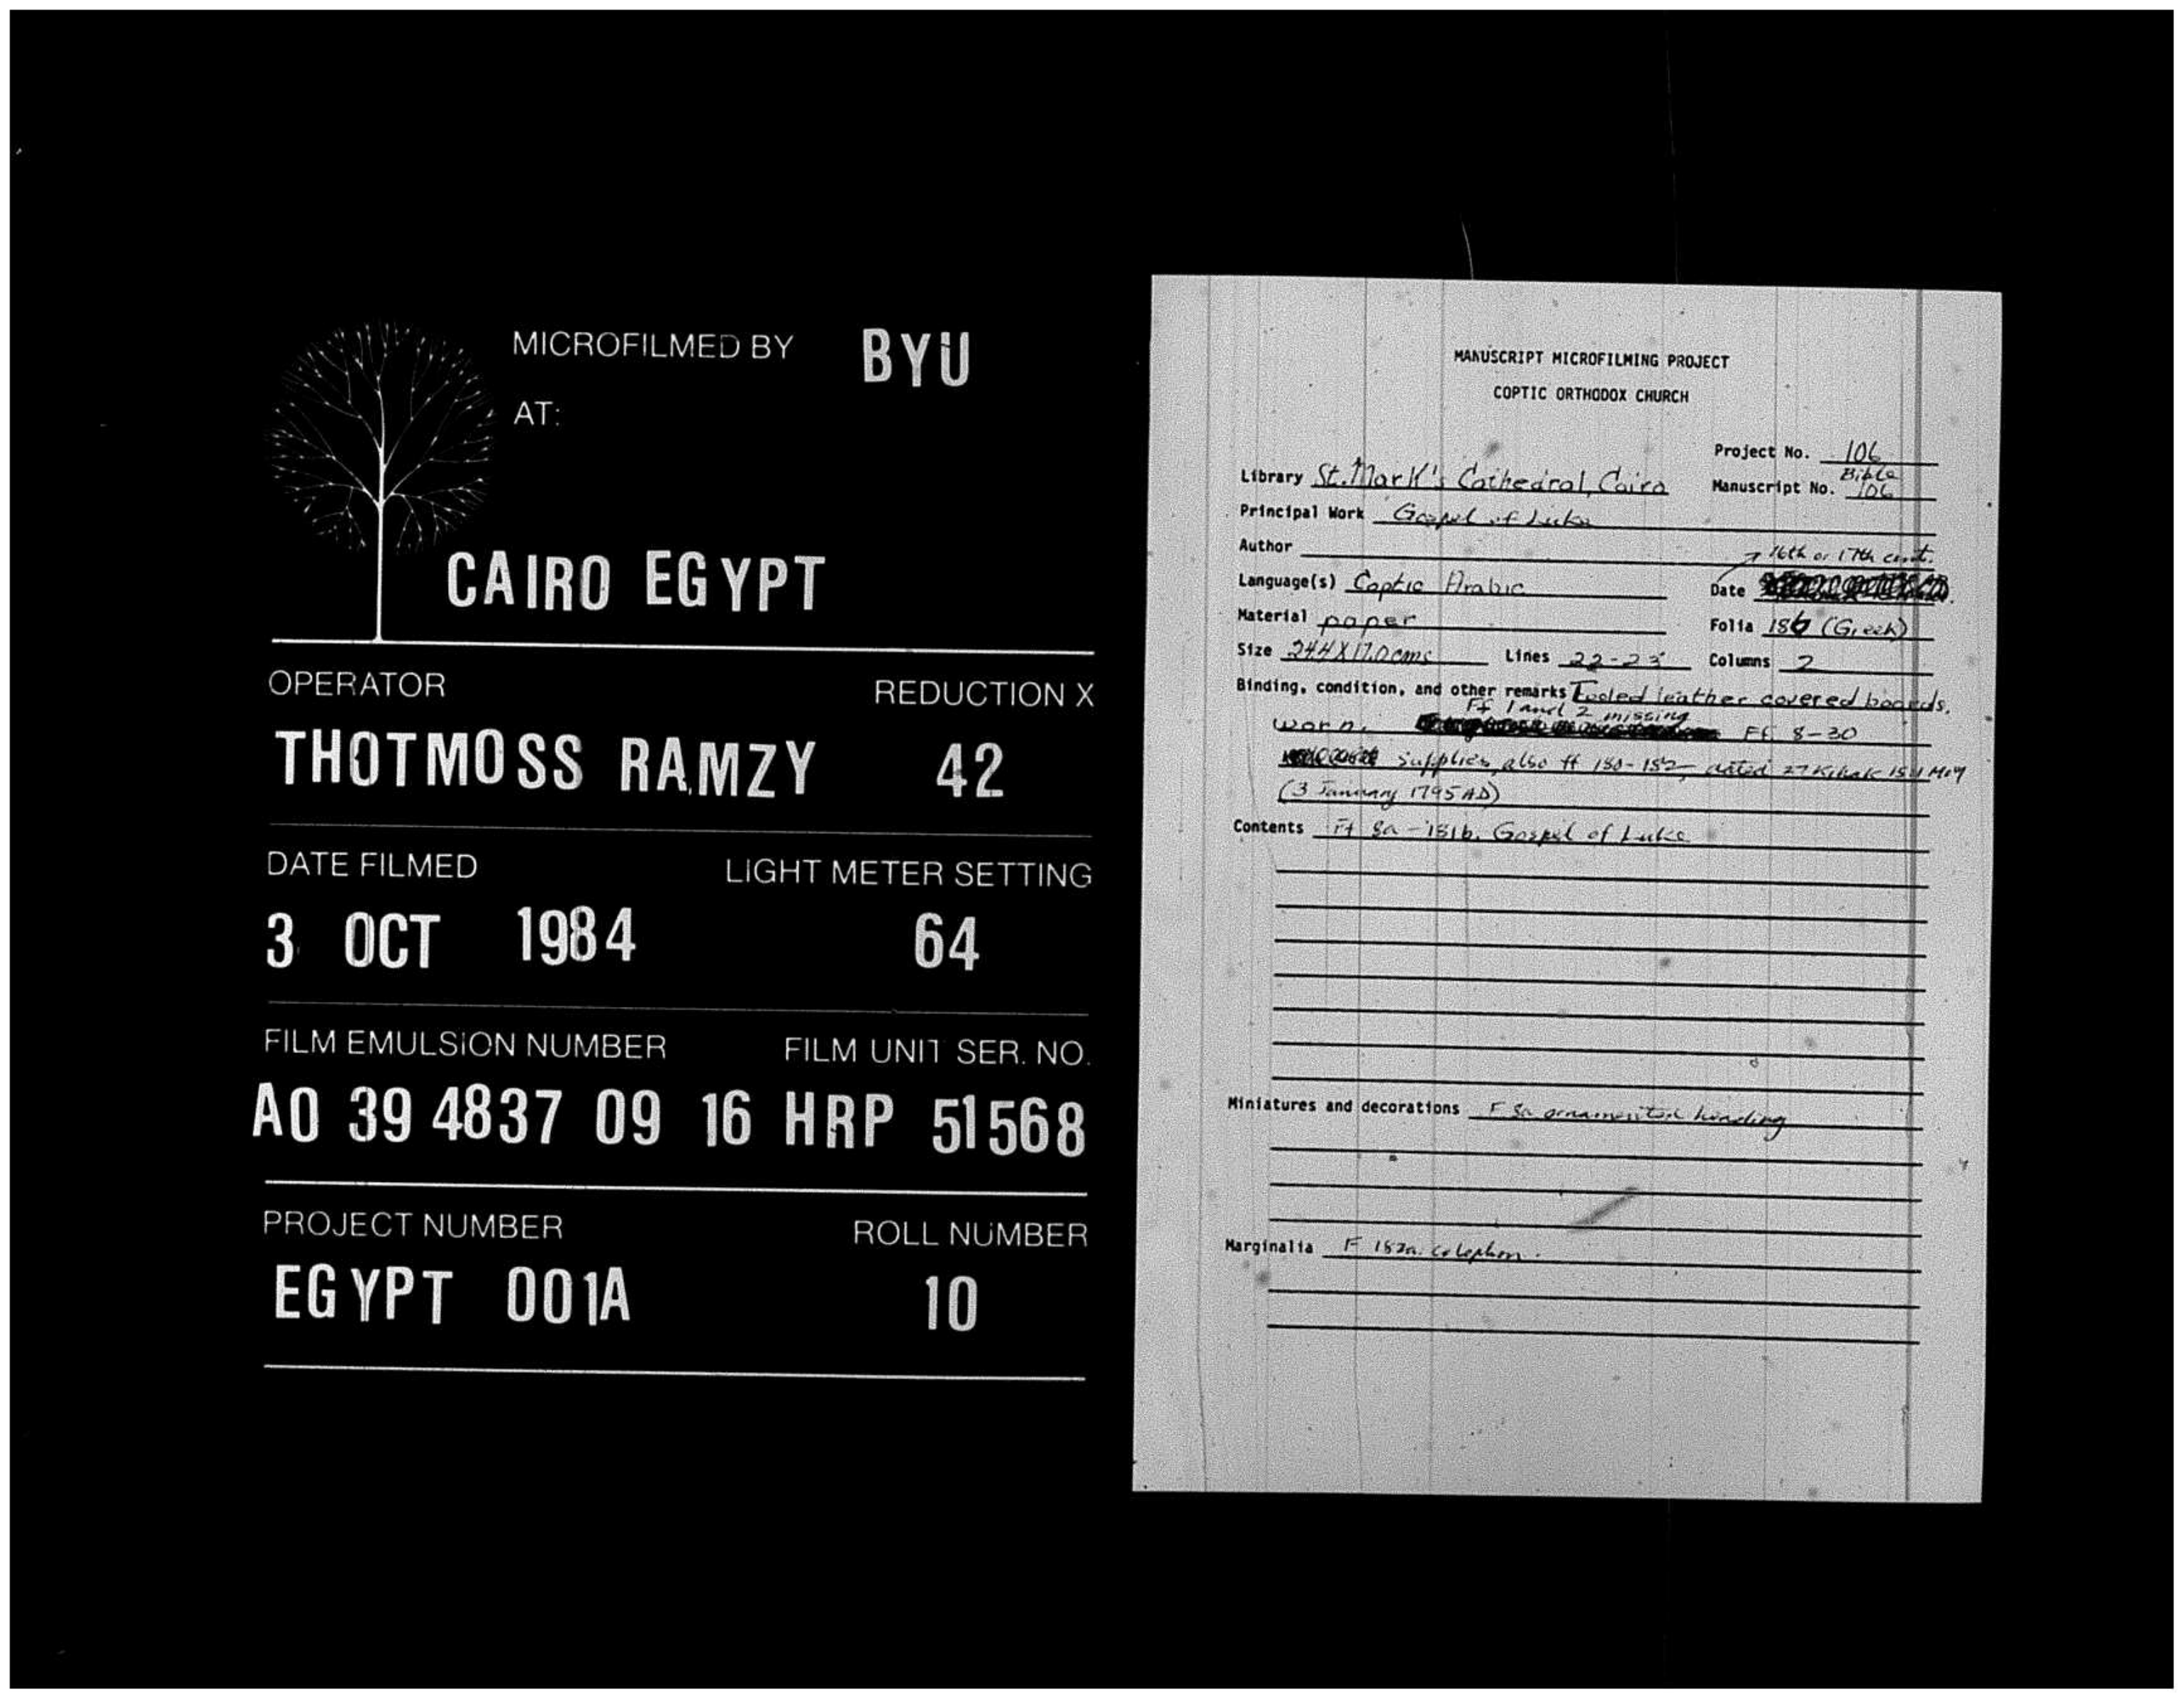 MICROFILMED BY BYU
AT:
CAIRO EGYPT
OPERATOR REDUCTION X
THOTMOSS RAMZY 42
DATE FILMED LIGHT METER SETTING
3 OCT 1984 64
FILM EMULSION NUMBER FILM UNIT SER. NO.
A0 39 4837 09 16 HRP 51568
PROJECT NUMBER ROLL NUMBER
EGYPT 001A 10
MANUSCRIPT MICROFILMING PROJECT
COPTIC ORTHODOX CHURCH
Project No. 106
Library St. Mark's Cathedral, Cairo Manuscript No. Bible 106
Principal Work Gospel of Luke
Author
16th or 17th cent.
Language(s) Coptic Arabic Date
Material paper Folia 186 (Greek)
Size 24.4 X 17.0 cms Lines 22-23 Columns 2
Binding, condition, and other remarks Tooled leather covered boards,
worn. Ff 1 and 2 missing Ff 8-30
supplies, also ff 180-182, dated 27 Kihak 1511 
(3 January 1795 AD)
Contents Ff 8a-181b. Gospel of Luke
Miniatures and decorations F 8a ornamented heading
Marginalia F 182a. colophon.